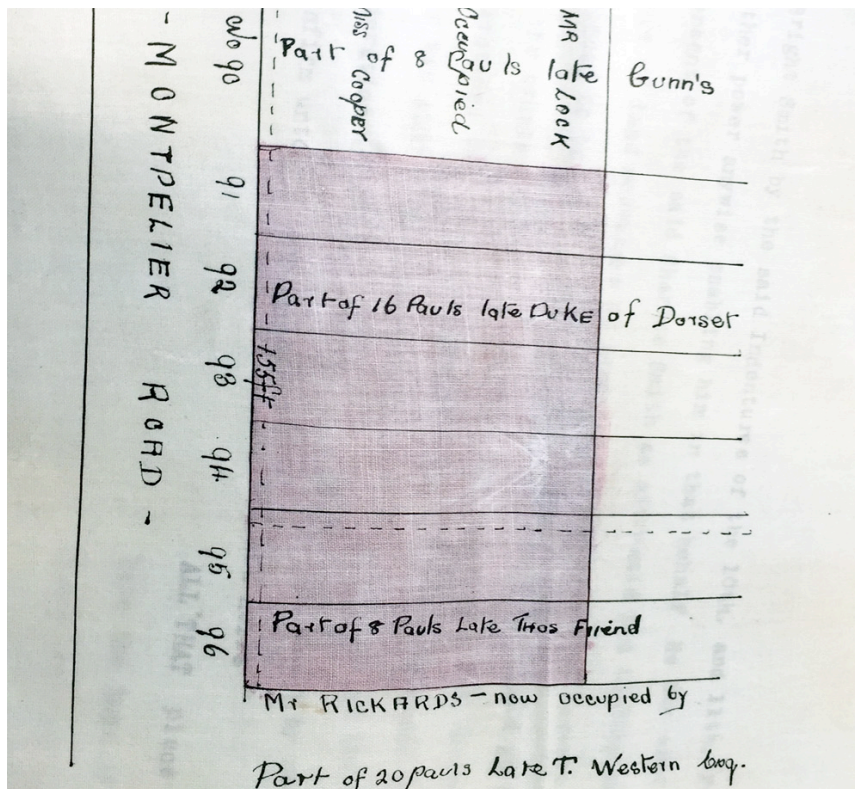 - MONTPELIER ROAD -
No 90
91
92
93
94
95
96
Part of 8 Pauls late Gunn's
Miss Cooper
Occupied
MR LOCK
Part of 16 Pauls late DUKE of Dorset
155ft
Part of 8 Pauls Late Thos Friend
Mr RICKARDS - now occupied by
Part of 20 pauls Late T. Western Esq.
ALL THAT